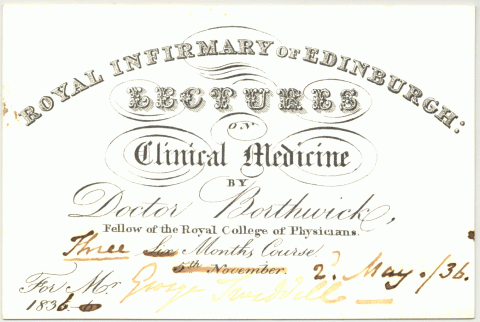 ROYAL INFIRMARY OF EDINBURGH:
LECTURES
ON
Clinical Medicine
BY
Doctor Borthwick,
Fellow of the Royal College of Physicians.
Three Six Months Course.
5th November. 2d May /36.
For Mr. George
1836